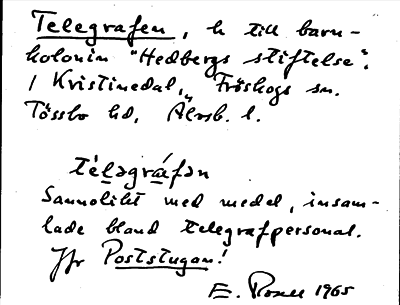 Telegrafen, h till barn-
kolonin "Hedbergs stiftelse".
/ Kristinedal, Fröskogs sn.
Tössbo hd, Älvsb. l.
téləgráfən
Sannolikt med medel, insam-
lade bland telegrafpersonal.
Jfr Poststugan!
E. Rosell 1965